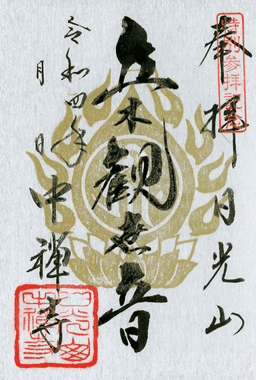 奉拝
特別参拝記念
日光山
立木観世音
令和四年
月
日
中禅寺